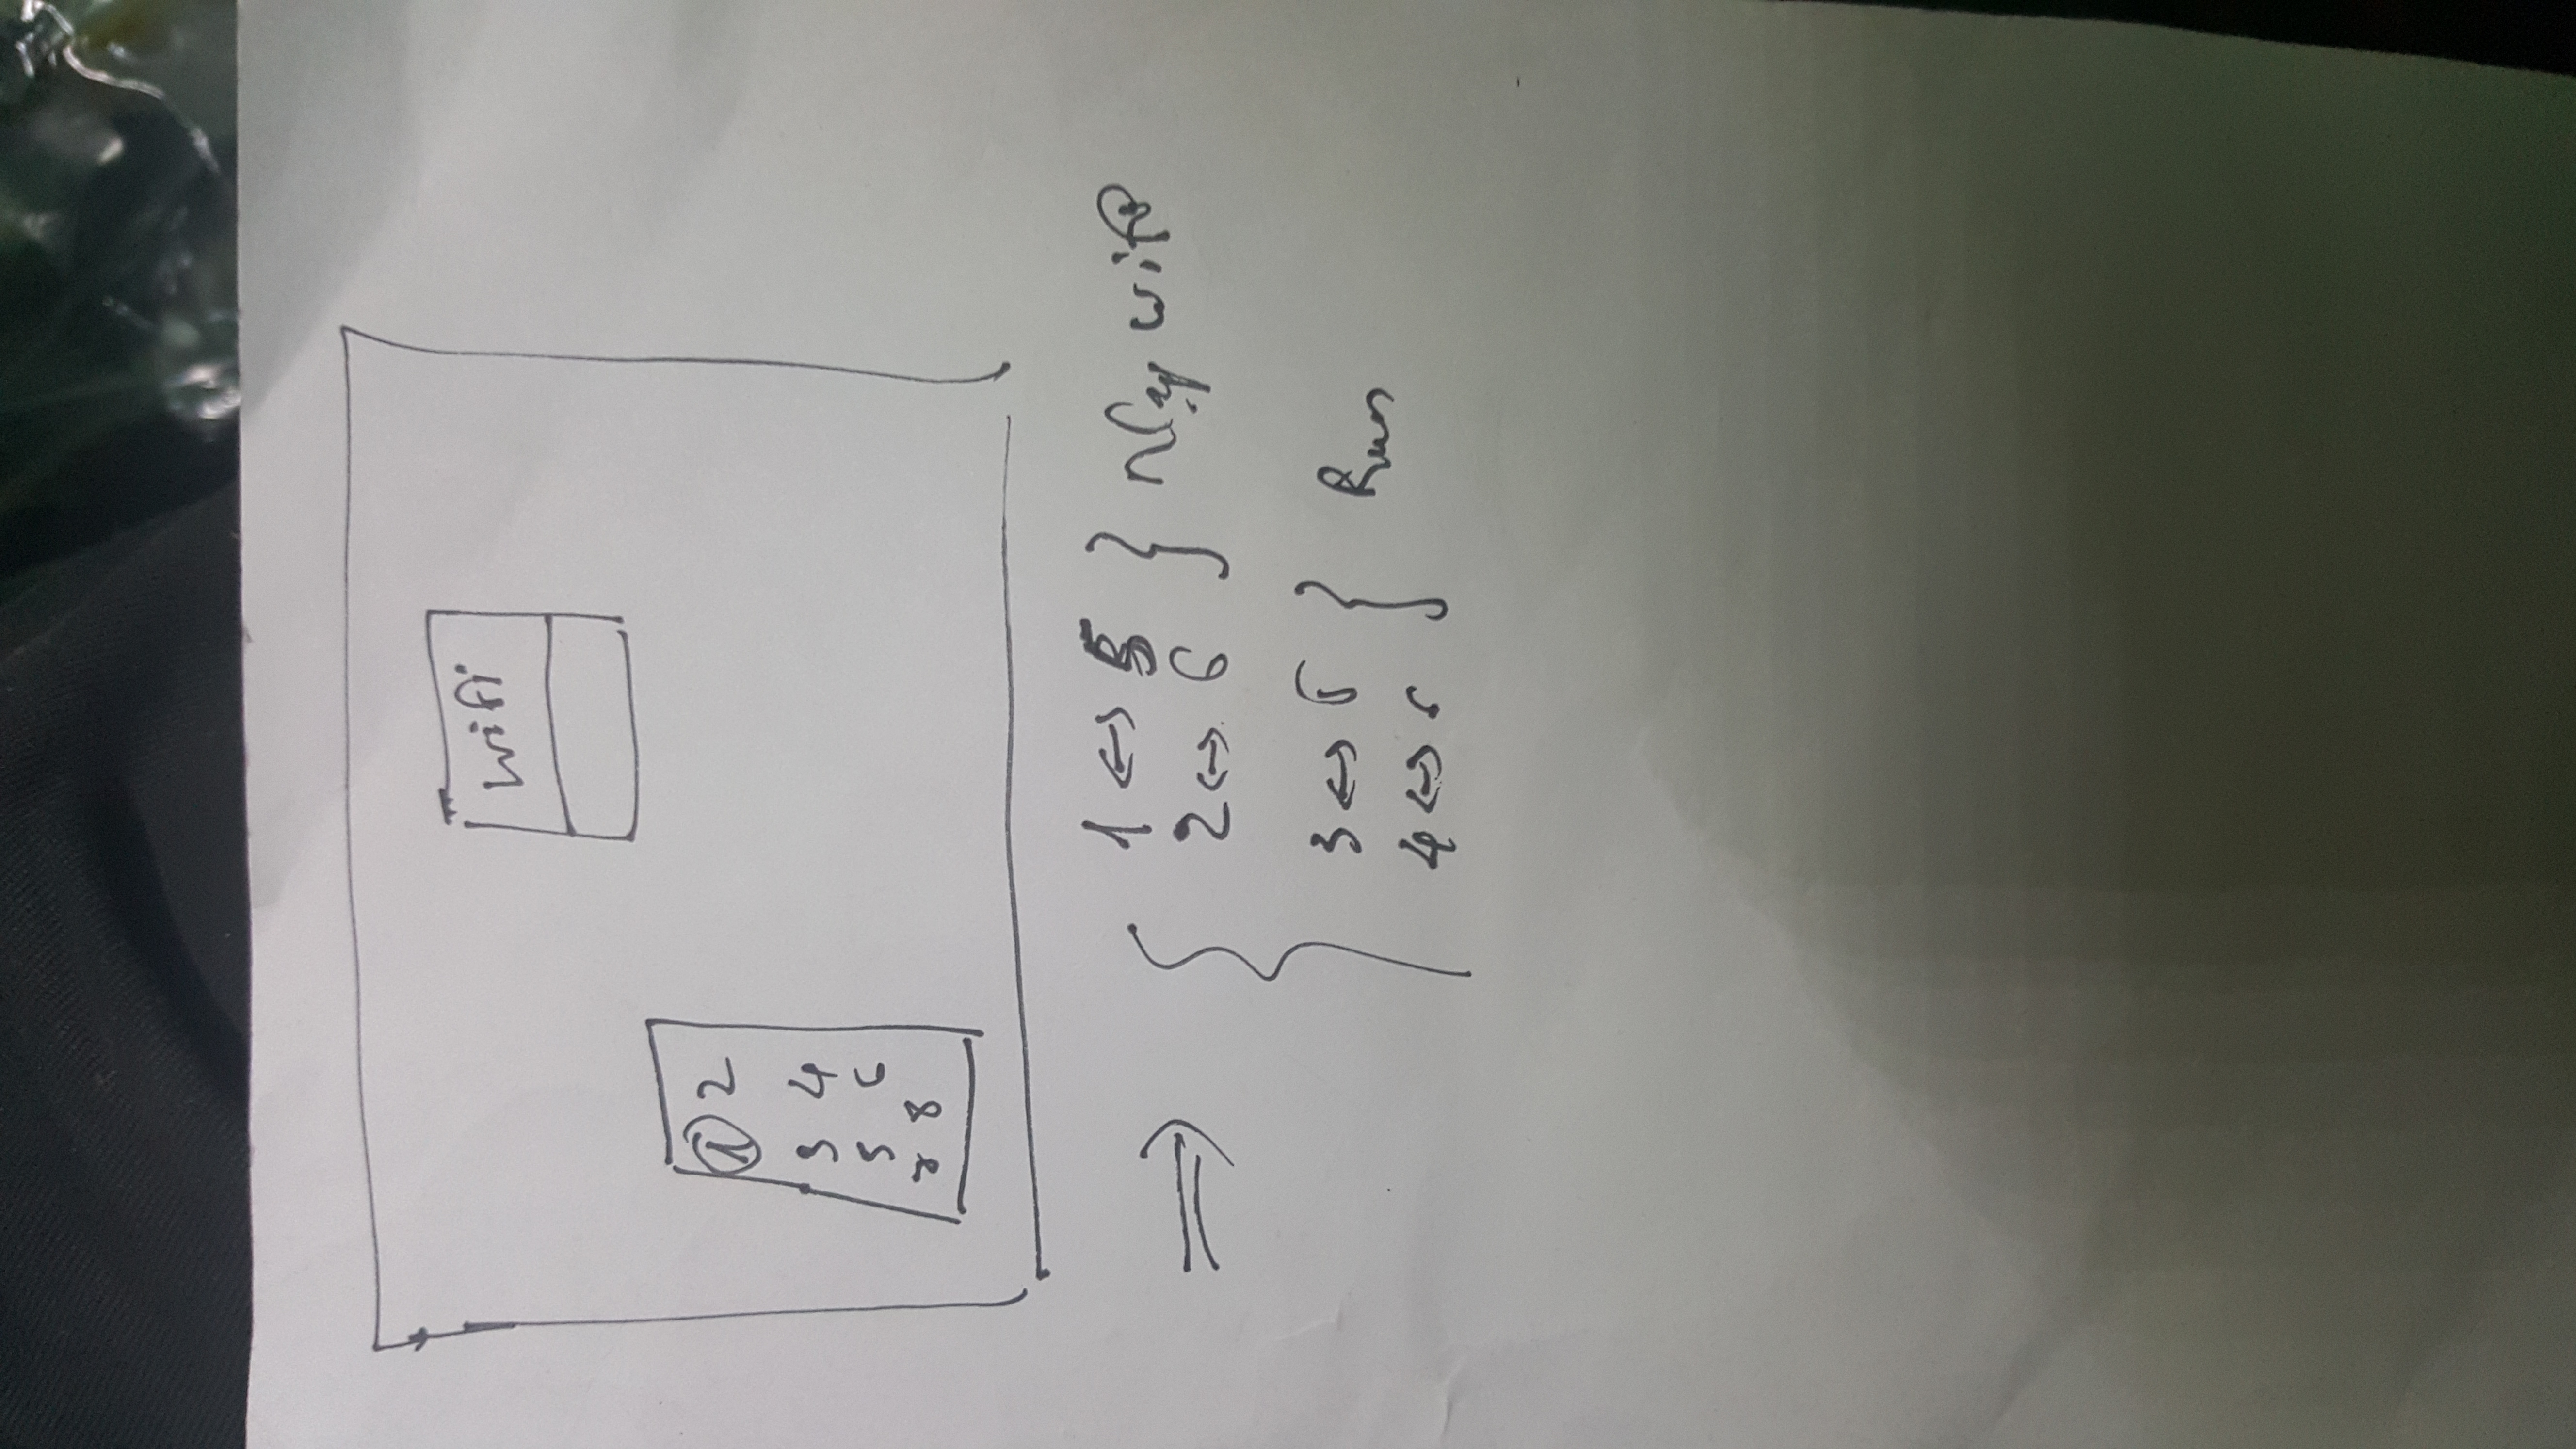 wifi
1 2
3 4
5 6
7 8
⇒
1 ↔ 5
2 ↔ 6
Nạp wifi
3 ↔ 5
4 ↔ 6
Run